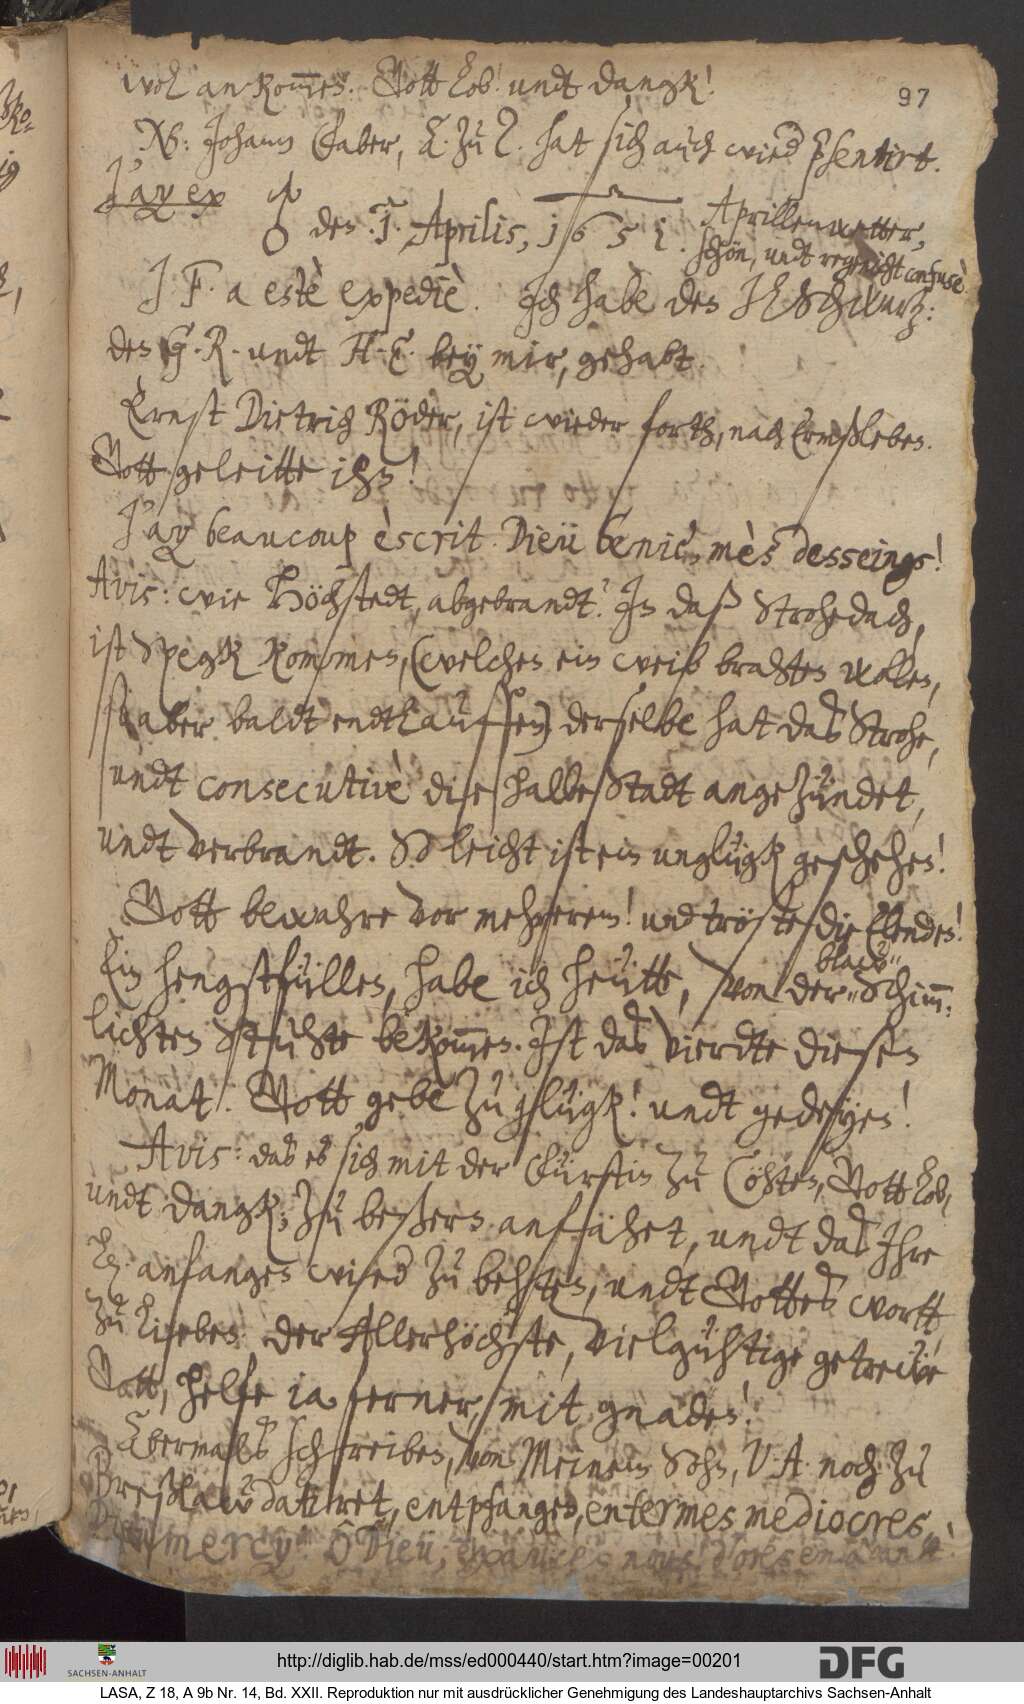 wol ankom̅en. Gott lob! undt dangk!
97
NB: Johann Faber, L. zu Z. hat sich auch wied psentirt.
J'ay ex ♂ den 1. Aprilis, 1651. Aprillenwetter,
schön, undt regenicht confusè
J F. a estè expediè. Ich habe den H Schwartz:
den G. R. undt H. E. bey mir, gehabt.
Ernst Dietrich Röder, ist wieder forth, nach Ermßleben.
Gott geleitte ihn!
J'ay beaucoup èscrit. Dieü benie, mès desseings!
Avis: wie Höchstedt, abgebrandt? In daß Strohedach,
ist Spegk kommen, (welchen ein weib brahten wollen,
so aber baldt endtlauffen) derselbe hat das Strohe,
undt consecutivè die halbe Stadt angezündet,
undt verbrandt. So leicht ist ein unglügk geschehen!
Gott bewahre vor mehrerem! und tröste die Elenden!
Ein hengstfüllen, habe ich heütte, von der blaw¨
Schim̅:
lichten Stuhte bekom̅en. Ist das vierdte diesen
Monat. Gott gebe zu glügk! undt gedeyen!
Avis: das es sich mit der Fürstin zu Cöhten, Gott lob,
undt dangk, zu beßern anfähet, undt das Ihre
anfanget wied zu behten, undt Gottes wortt
zu lieben. der Allerhöchste, vielgühtige getrewe
Gott, helfe ia ferner, mit gnaden!
Abermalß schreiben, von Meinem Sohn, V. A. noch zu
Breßlaw datiret, entpfangen, en termes mediocres,
mercy. Ô Dieu, exauces nous d'ores en avant.
http://diglib.hab.de/mss/ed000440/start.htm?image=00201
SACHSEN-ANHALT
DFG
LASA, Z 18, A 9b Nr. 14, Bd. XXII. Reproduktion nur mit ausdrücklicher Genehmigung des Landeshauptarchivs Sachsen-Anhalt